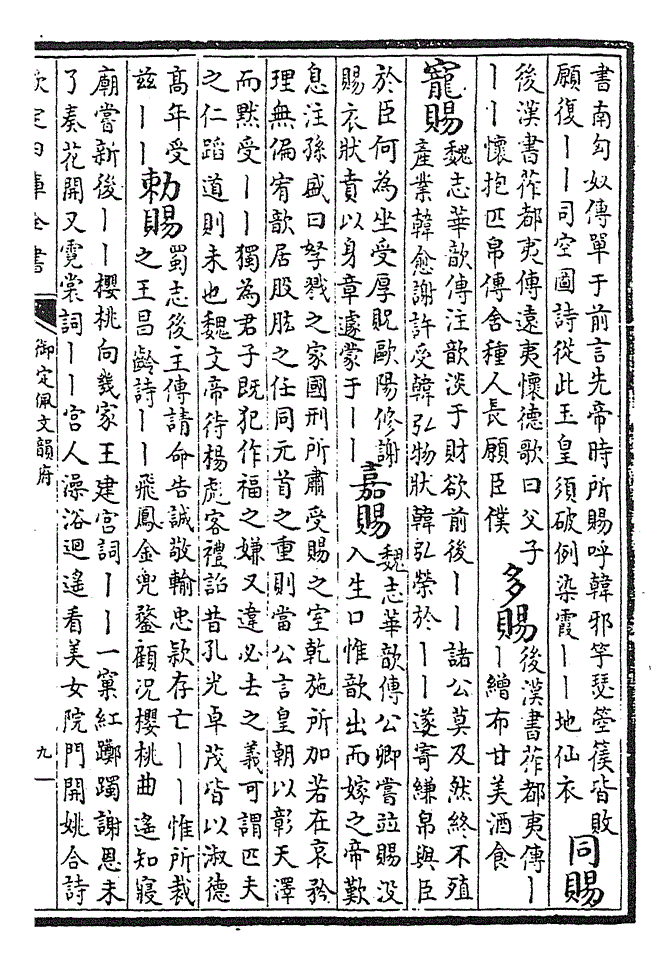 書南匈奴傳單于前言先帝時所賜呼韓邪竽瑟箜篌皆敗
願復丨丨司空圖詩從此玉皇須破例染霞丨丨地仙衣
同賜
後漢書莋都夷傳遠夷懷德歌曰父子
丨丨懷抱匹帛傳舍種人長願臣僕
多賜
後漢書莋都夷傳丨
丨繒布甘美酒食
寵賜
魏志華歆傳注歆淡于財欲前後丨丨諸公莫及然終不殖
產業韓愈謝許受韓弘物狀韓弘榮於丨丨遂寄縑帛與臣
於臣何為坐受厚貺歐陽修謝
賜衣狀賁以身章遽蒙于丨丨
嘉賜
魏志華歆傳公卿嘗並賜没
入生口惟歆出而嫁之帝歎
息注孫盛曰孥戮之家國刑所肅受賜之室乾施所加若在哀矜
理無偏宥歆居股肱之任同元首之重則當公言皇朝以彰天澤
而黙受丨丨獨為君子既犯作福之嫌又違必去之義可謂匹夫
之仁蹈道則未也魏文帝待楊彪客禮詔昔孔光卓茂皆以淑德
高年受
兹丨丨
勅賜
蜀志後主傳請命告誠敬輸忠款存亡丨丨惟所裁
之王昌齡詩丨丨飛鳳金兜鍪顧况櫻桃曲遥知寢
廟嘗新後丨丨櫻桃向幾家王建宫詞丨丨一窠紅躑躅謝恩未
了奏花開又霓裳詞丨丨宫人澡浴迴遥看美女院門開姚合詩
欽定四庫全書
御定佩文韻府
九